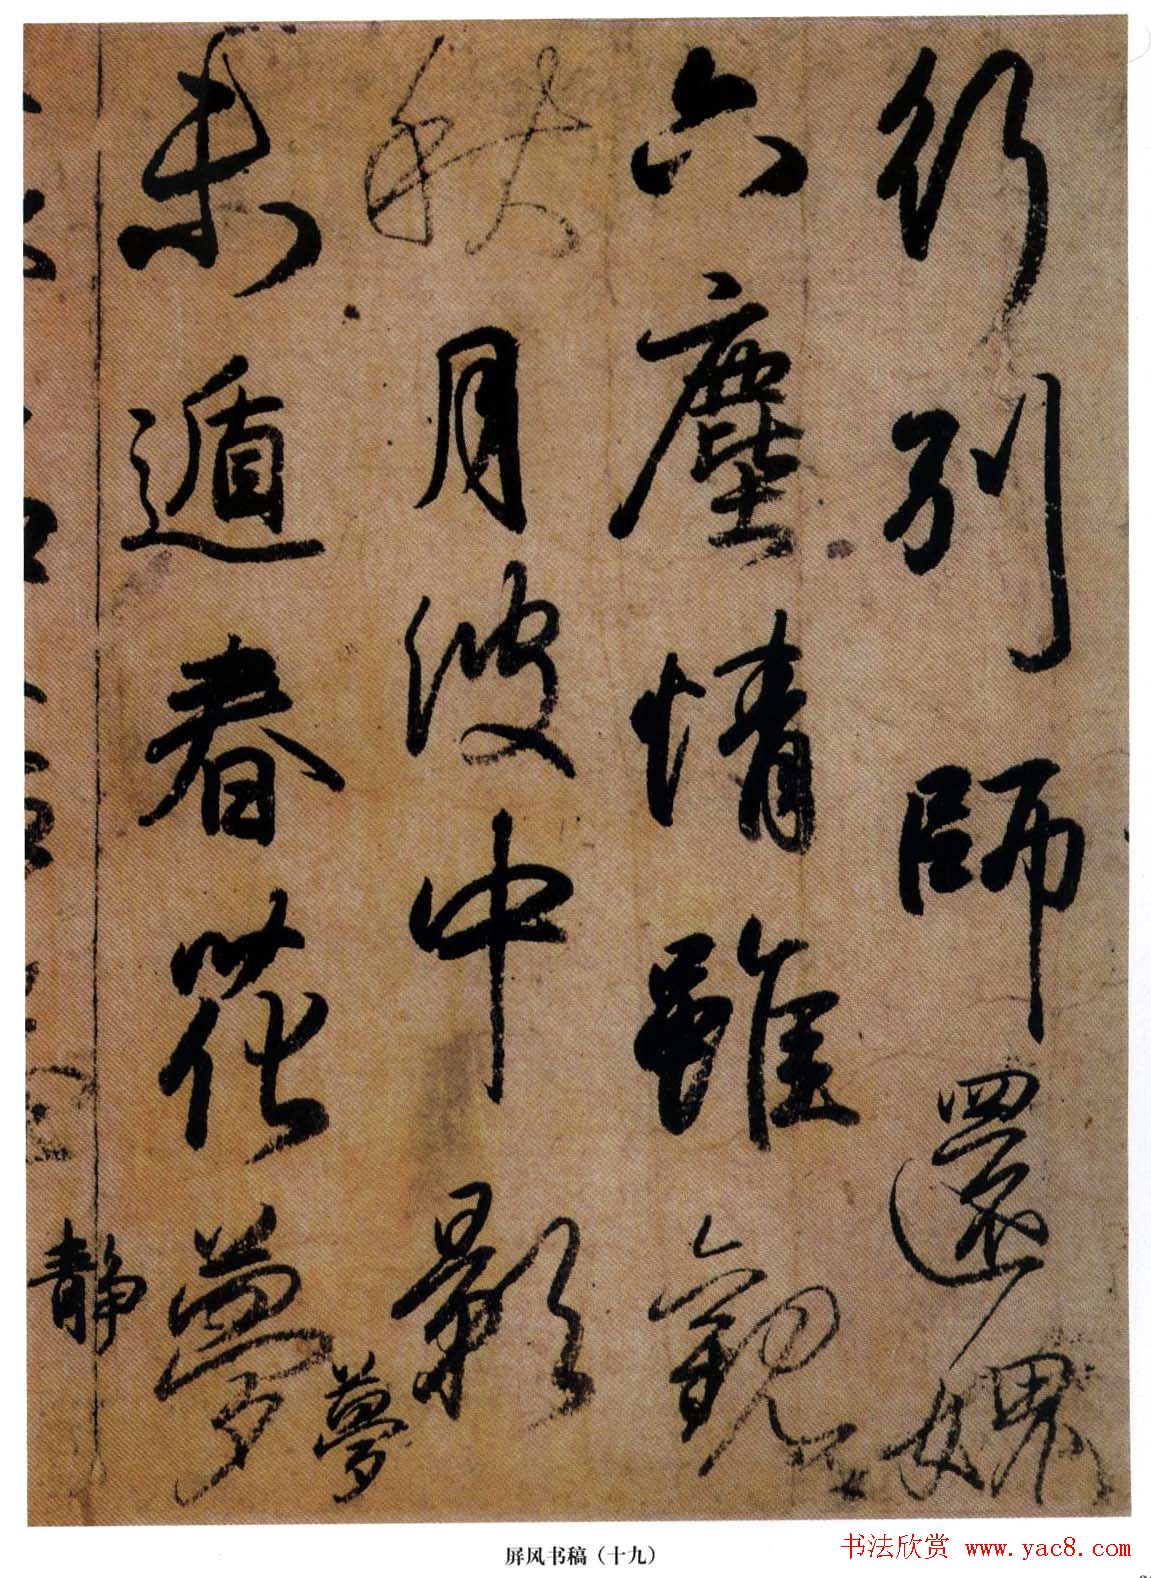 行別師還媿
六塵情雖觀
秋月波中影
未遁春花夢
夢
静
屏风书稿（十九）
书法欣赏 www.yac8.com